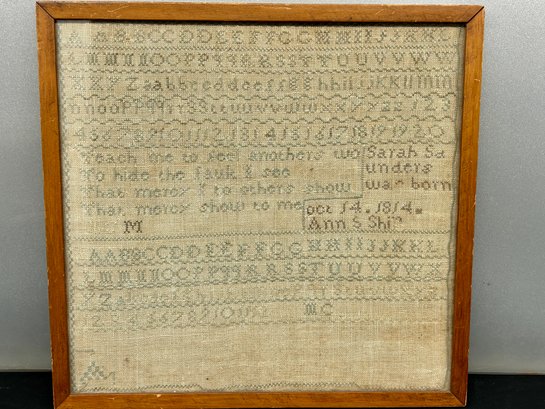 A A B B C C D D E E F F G G H H I I J J K K L
L M M N N O O P P Q Q R R S S T T U U V V W W
X X Y Y Z a a b b c c d d e e f f g g h h i i j j k k l l m m
n n o o p p q q r r s s t t u u v v w w x x y y z z 1 2 3
4 5 6 7 8 9 10 11 12 13 14 15 16 17 18 19 19 20
Teach me to feel anothers wo
To hide the fault I see
That mercy I to others show
That mercy show to me
M
Sarah Sa
unders
was born
oct 14. 1814.
Ann S
A A B B C C D D E E F F G G H H I I J J K K L
L M M N N O O P P Q Q R R S S T T U U V V W X
MC